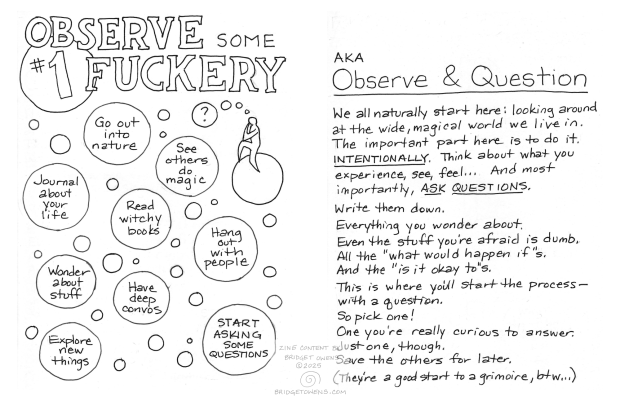 OBSERVE SOME
#1 FUCKERY
?
Go out
into
nature
See
others
do
magic
Journal
about
your
life
Read
witchy
books
Hang
out
with
people
Wonder
about
stuff
Have
deep
convos
START
ASKING
SOME
QUESTIONS
Explore
new
things
AKA
Observe & Question
We all naturally start here: looking around
at the wide, magical world we live in.
The important part here is to do it.
INTENTIONALLY. Think about what you
experience, see, feel... And most
importantly, ASK QUESTIONS.
Write them down.
Everything you wonder about.
Even the stuff you're afraid is dumb.
All the "what would happen if"s.
And the "is it okay to"s.
This is where you'll start the process—
with a question.
So pick one!
One you're really curious to answer.
Just one, though.
Save the others for later.
(They're a good start to a grimoire, btw...)
ZINE CONTENT BY
BRIDGET OWENS
©2025
BRIDGETOWENS.COM